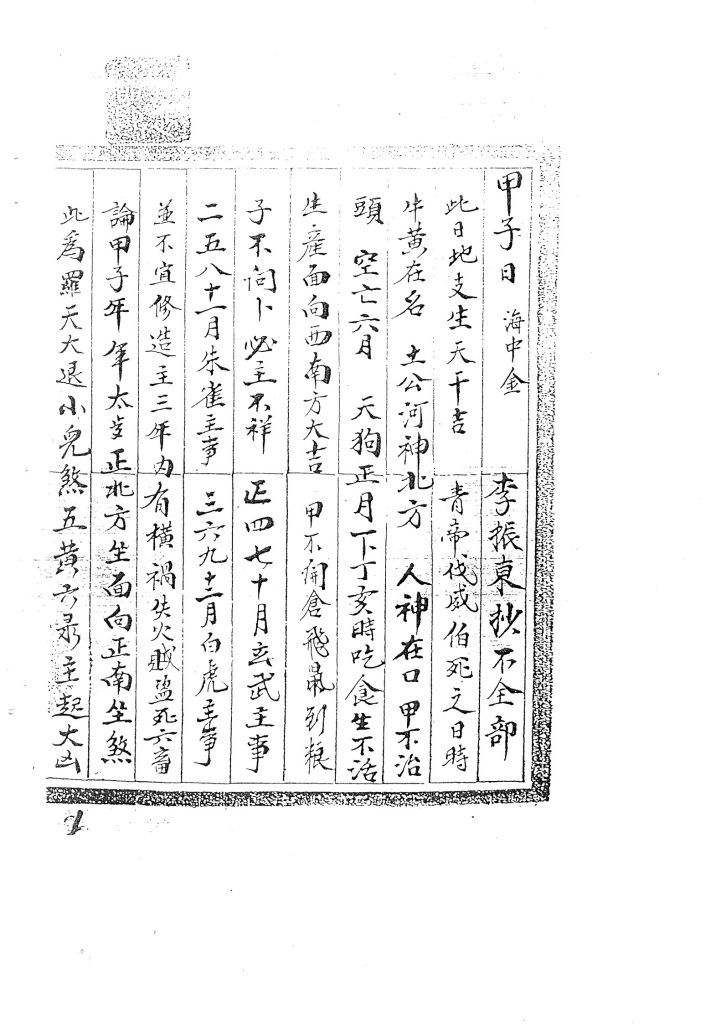 甲子日 海中金 李振東抄不全部
此日地支生天干吉 青帝伐戚伯死之日時
牛黄在名 土公河神北方 人神在口 甲不治
頭 空亡六月 天狗正月下丁亥時吃食生不活
生産面向西南方大吉 甲不開倉飛鼠到粮
子不问卜必主不祥 正四七十月玄武主事
二五八十一月朱雀主事 三六九十二月白虎主事
並不宜修造主三年内有横禍失火賊盗死六畜
論甲子年年太歩正北方坐面向正南坐煞
此為羅天大退小兒煞五黄六录主起大凶
1